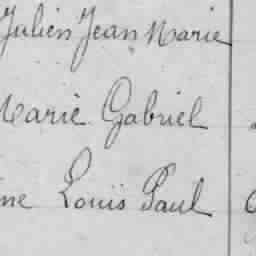 Julien Jean Marie
Marie Gabriel
ne Louis Paul